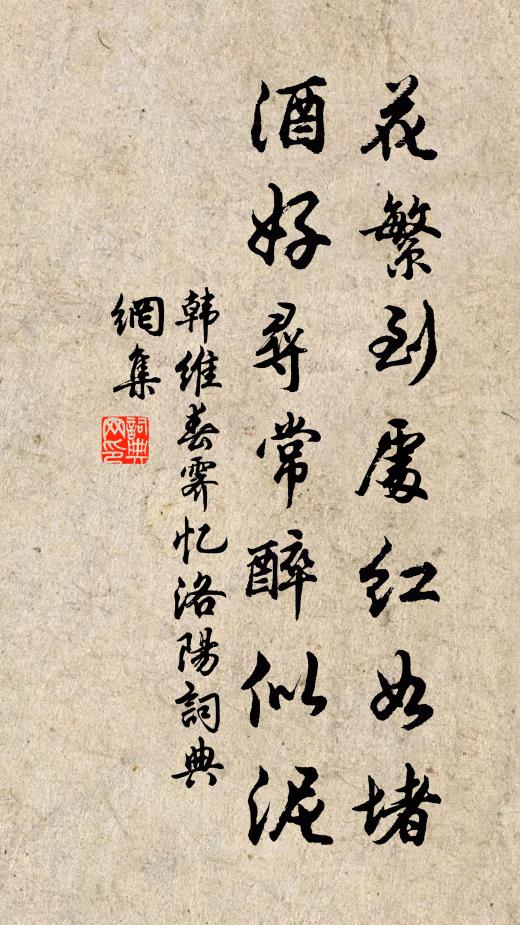 花繁到處红如堵
酒好尋常醉似泥
韩維春霽忆洛陽詞典
網集
詞典網印